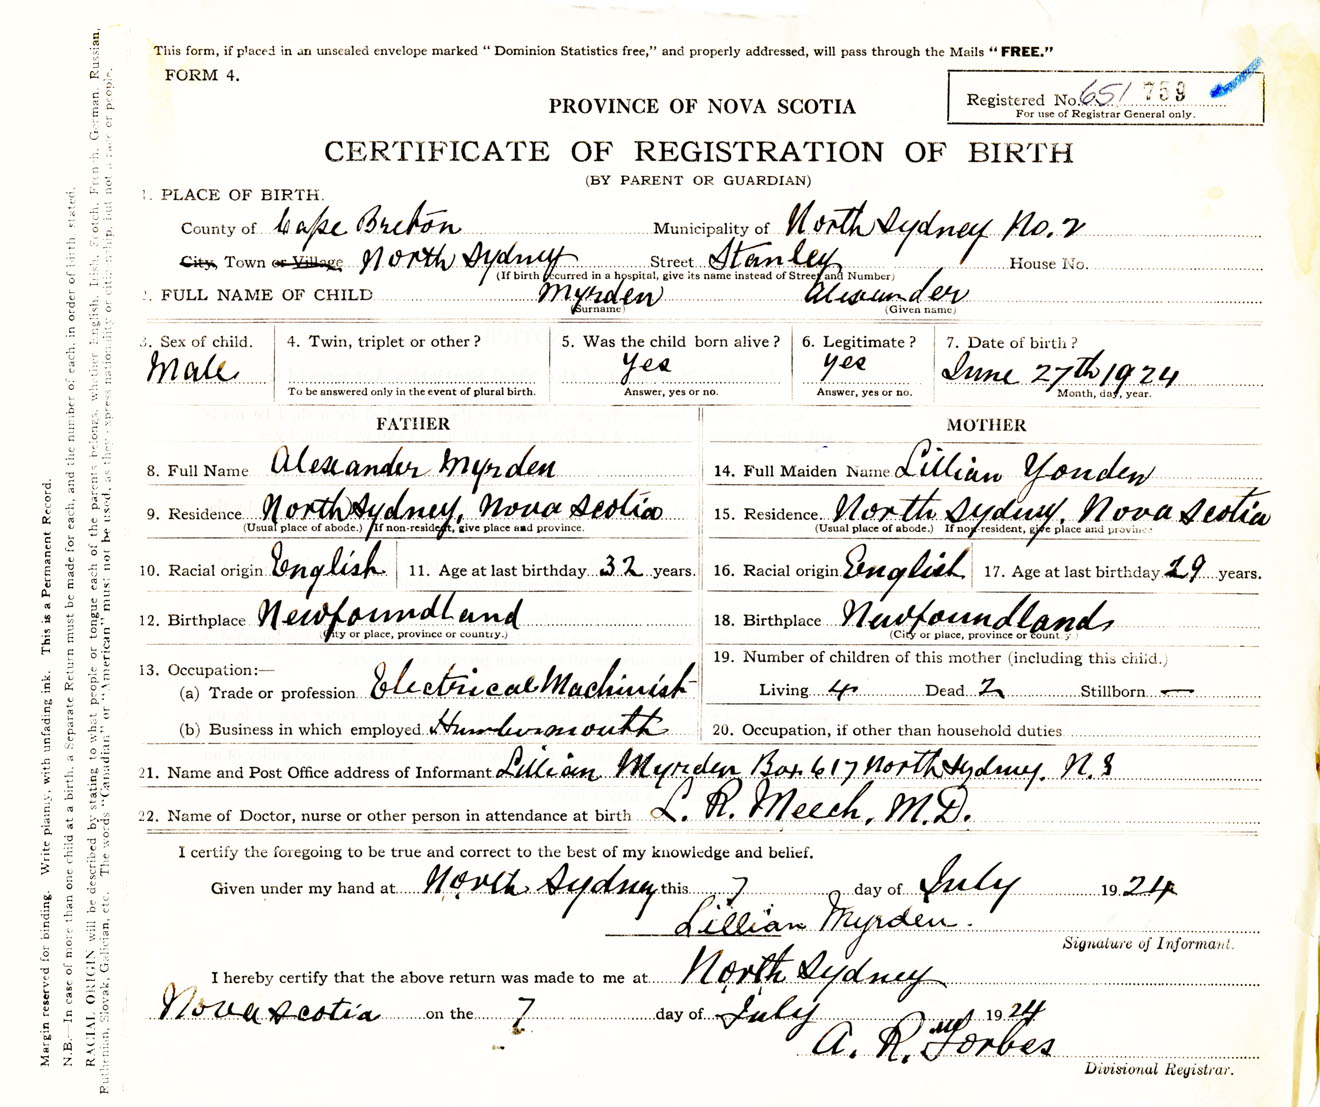 This form, if placed in an unsealed envelope marked “ Dominion Statistics free,” and properly addressed, will pass through the Mails “ FREE.”
FORM 4.
Registered No. 651 759
For use of Registrar General only.
PROVINCE OF NOVA SCOTIA
CERTIFICATE OF REGISTRATION OF BIRTH
(BY PARENT OR GUARDIAN)
1. PLACE OF BIRTH.
County of Cape Breton Municipality of North Sydney No. 2
City, Town or Village North Sydney Street Stanley House No.
(If birth occurred in a hospital, give its name instead of Street and Number)
2. FULL NAME OF CHILD Myrden Alexander
(Surname) (Given name)
3. Sex of child. 4. Twin, triplet or other ? 5. Was the child born alive ? 6. Legitimate ? 7. Date of birth ?
Male Yes Yes June 27th 1924
To be answered only in the event of plural birth. Answer, yes or no. Answer, yes or no. Month, day, year.
FATHER MOTHER
8. Full Name Alexander Myrden 14. Full Maiden Name Lillian Yonden
9. Residence North Sydney, Nova Scotia 15. Residence North Sydney, Nova Scotia
(Usual place of abode.) If non-resident, give place and province. (Usual place of abode.) If non-resident, give place and province
10. Racial origin English 11. Age at last birthday 32 years. 16. Racial origin English 17. Age at last birthday 29 years.
12. Birthplace Newfoundland 18. Birthplace Newfoundland
(City or place, province or country.) (City or place, province or country)
13. Occupation:— 19. Number of children of this mother (including this child.)
(a) Trade or profession Electrical Machinist Living 4 Dead 2 Stillborn —
(b) Business in which employed Humbermouth 20. Occupation, if other than household duties
21. Name and Post Office address of Informant Lillian Myrden Box 617 North Sydney, N.S
22. Name of Doctor, nurse or other person in attendance at birth L. R. Meech, M.D.
I certify the foregoing to be true and correct to the best of my knowledge and belief.
Given under my hand at North Sydney this 7 day of July 1924
Lillian Myrden.
Signature of Informant.
I hereby certify that the above return was made to me at North Sydney
Nova Scotia on the 7 day of July 1924
A. R. Forbes
Divisional Registrar.
Margin reserved for binding. Write plainly, with unfading ink. This is a Permanent Record.
N.B.—In case of more than one child at a birth, a Separate Return must be made for each, and the number of each, in order of birth, stated.
RACIAL ORIGIN will be described by stating to what people or tongue each of the parents belongs, whether English, Irish, Scotch, French, German, Russian,
Ruthenian, Slovak, Galician, etc. The words “Canadian” or “American” must not be used, as they express nationality or citizenship, but not a race or people.